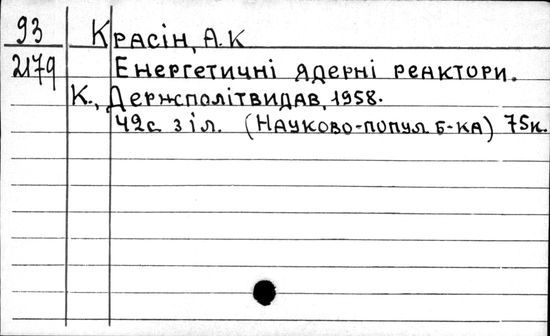 93 Красін, А.К
2179 Енергетичні ядерні реактори.
К., Держполітвидав, 1958.
42с. з іл. (Науково-попул б-ка) 75к.